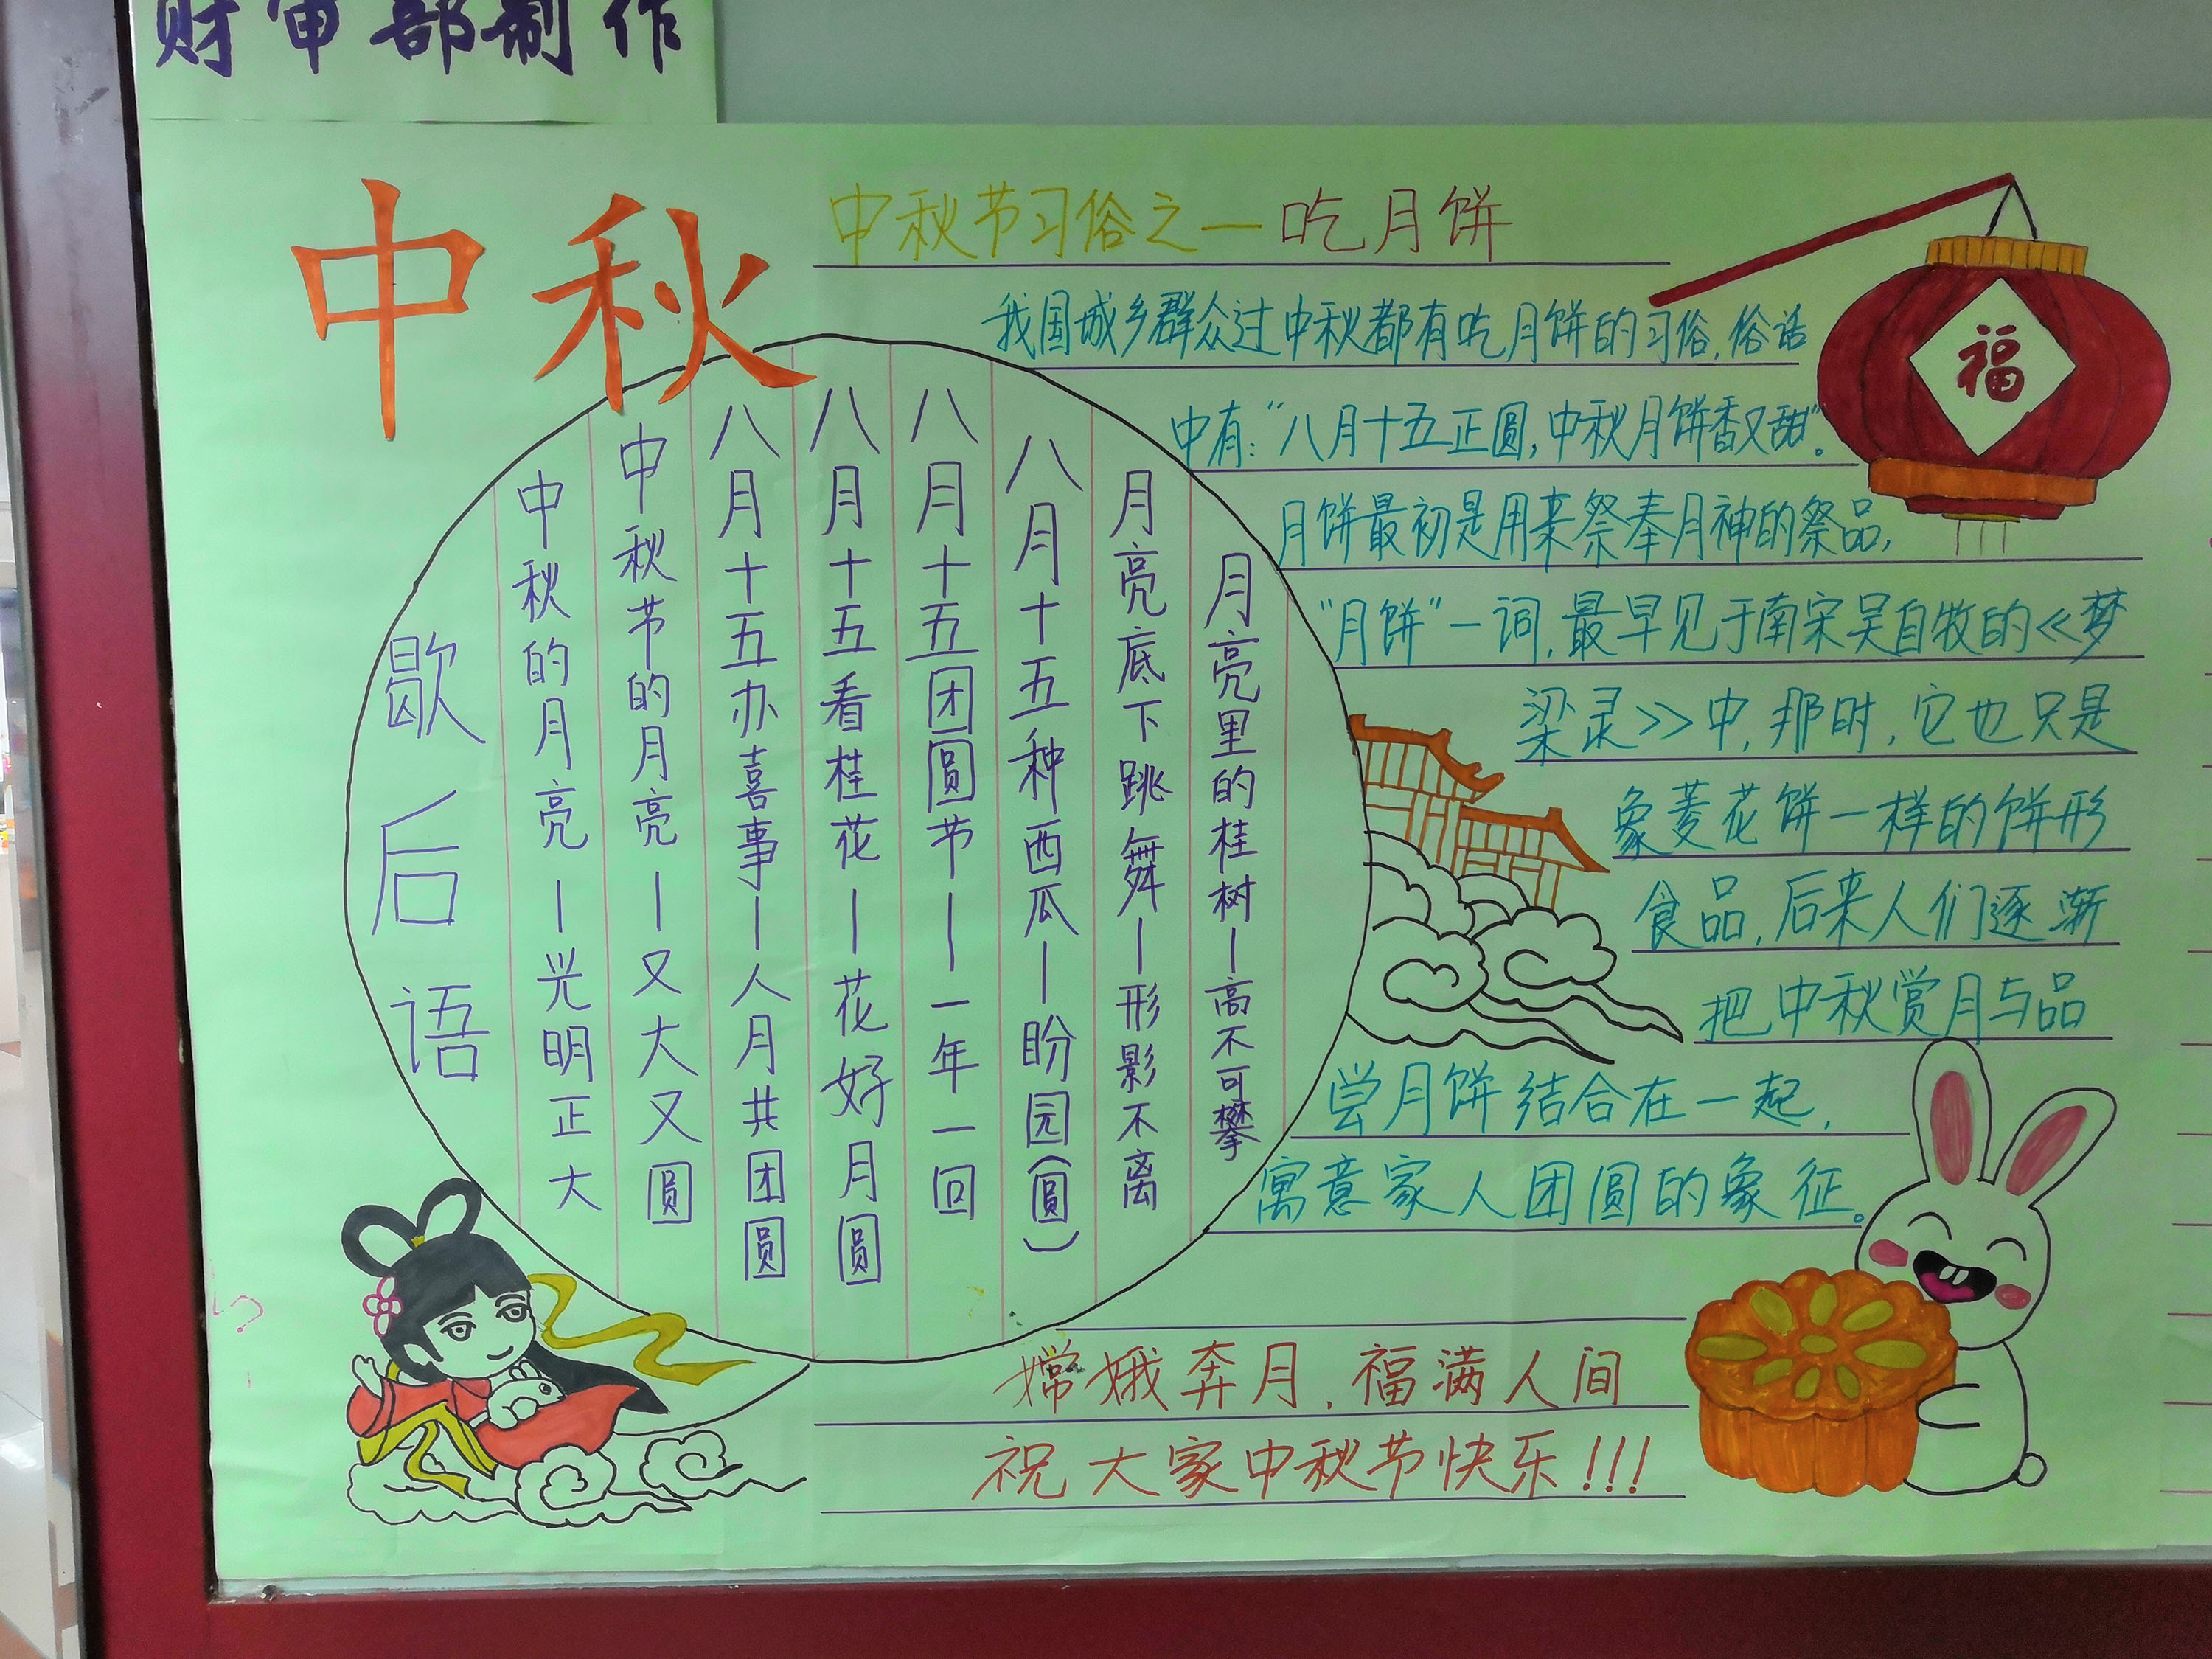 财审部制作
中秋
中秋节习俗之一吃月饼
我国城乡群众过中秋都有吃月饼的习俗,俗话
中有:“八月十五正圆,中秋月饼香又甜”。
月饼最初是用来祭奉月神的祭品,
“月饼”一词,最早见于南宋吴自牧的《梦
梁灵》中,那时,它也只是
象菱花饼一样的饼形
食品,后来人们逐渐
把中秋赏月与品
尝月饼结合在一起,
寓意家人团圆的象征。
歇后语
中秋的月亮—光明正大
中秋节的月亮—又大又圆
八月十五办喜事—人月共团圆
八月十五看桂花—花好月圆
八月十五团圆节—一年一回
八月十五种西瓜—盼园(圆)
月亮底下跳舞—形影不离
月亮里的桂树—高不可攀
嫦娥奔月,福满人间
祝大家中秋节快乐!!!
福